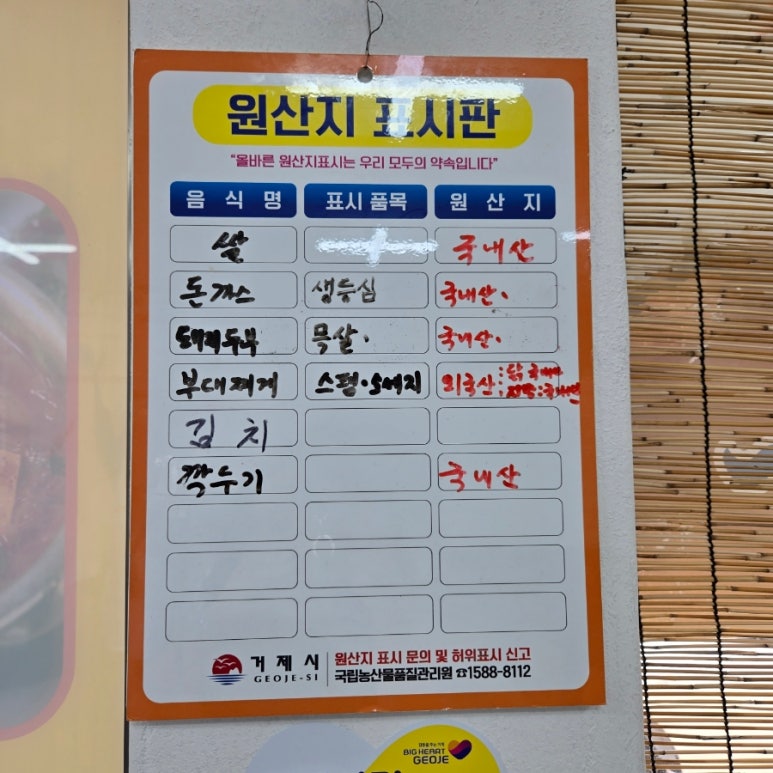 원산지 표시판
"올바른 원산지표시는 우리 모두의 약속입니다"
음식명 표시품목 원산지
쌀 국내산
돈까스 생등심 국내산.
두부 목살. 국내산.
부대찌개 스팸·소세지 외국산:닭:국내산
김치
깍두기 국내산
거제시
GEOJE-SI
원산지 표시 문의 및 허위표시 신고
국립농산물품질관리원 ☎1588-8112
BIG HEART
GEOJE